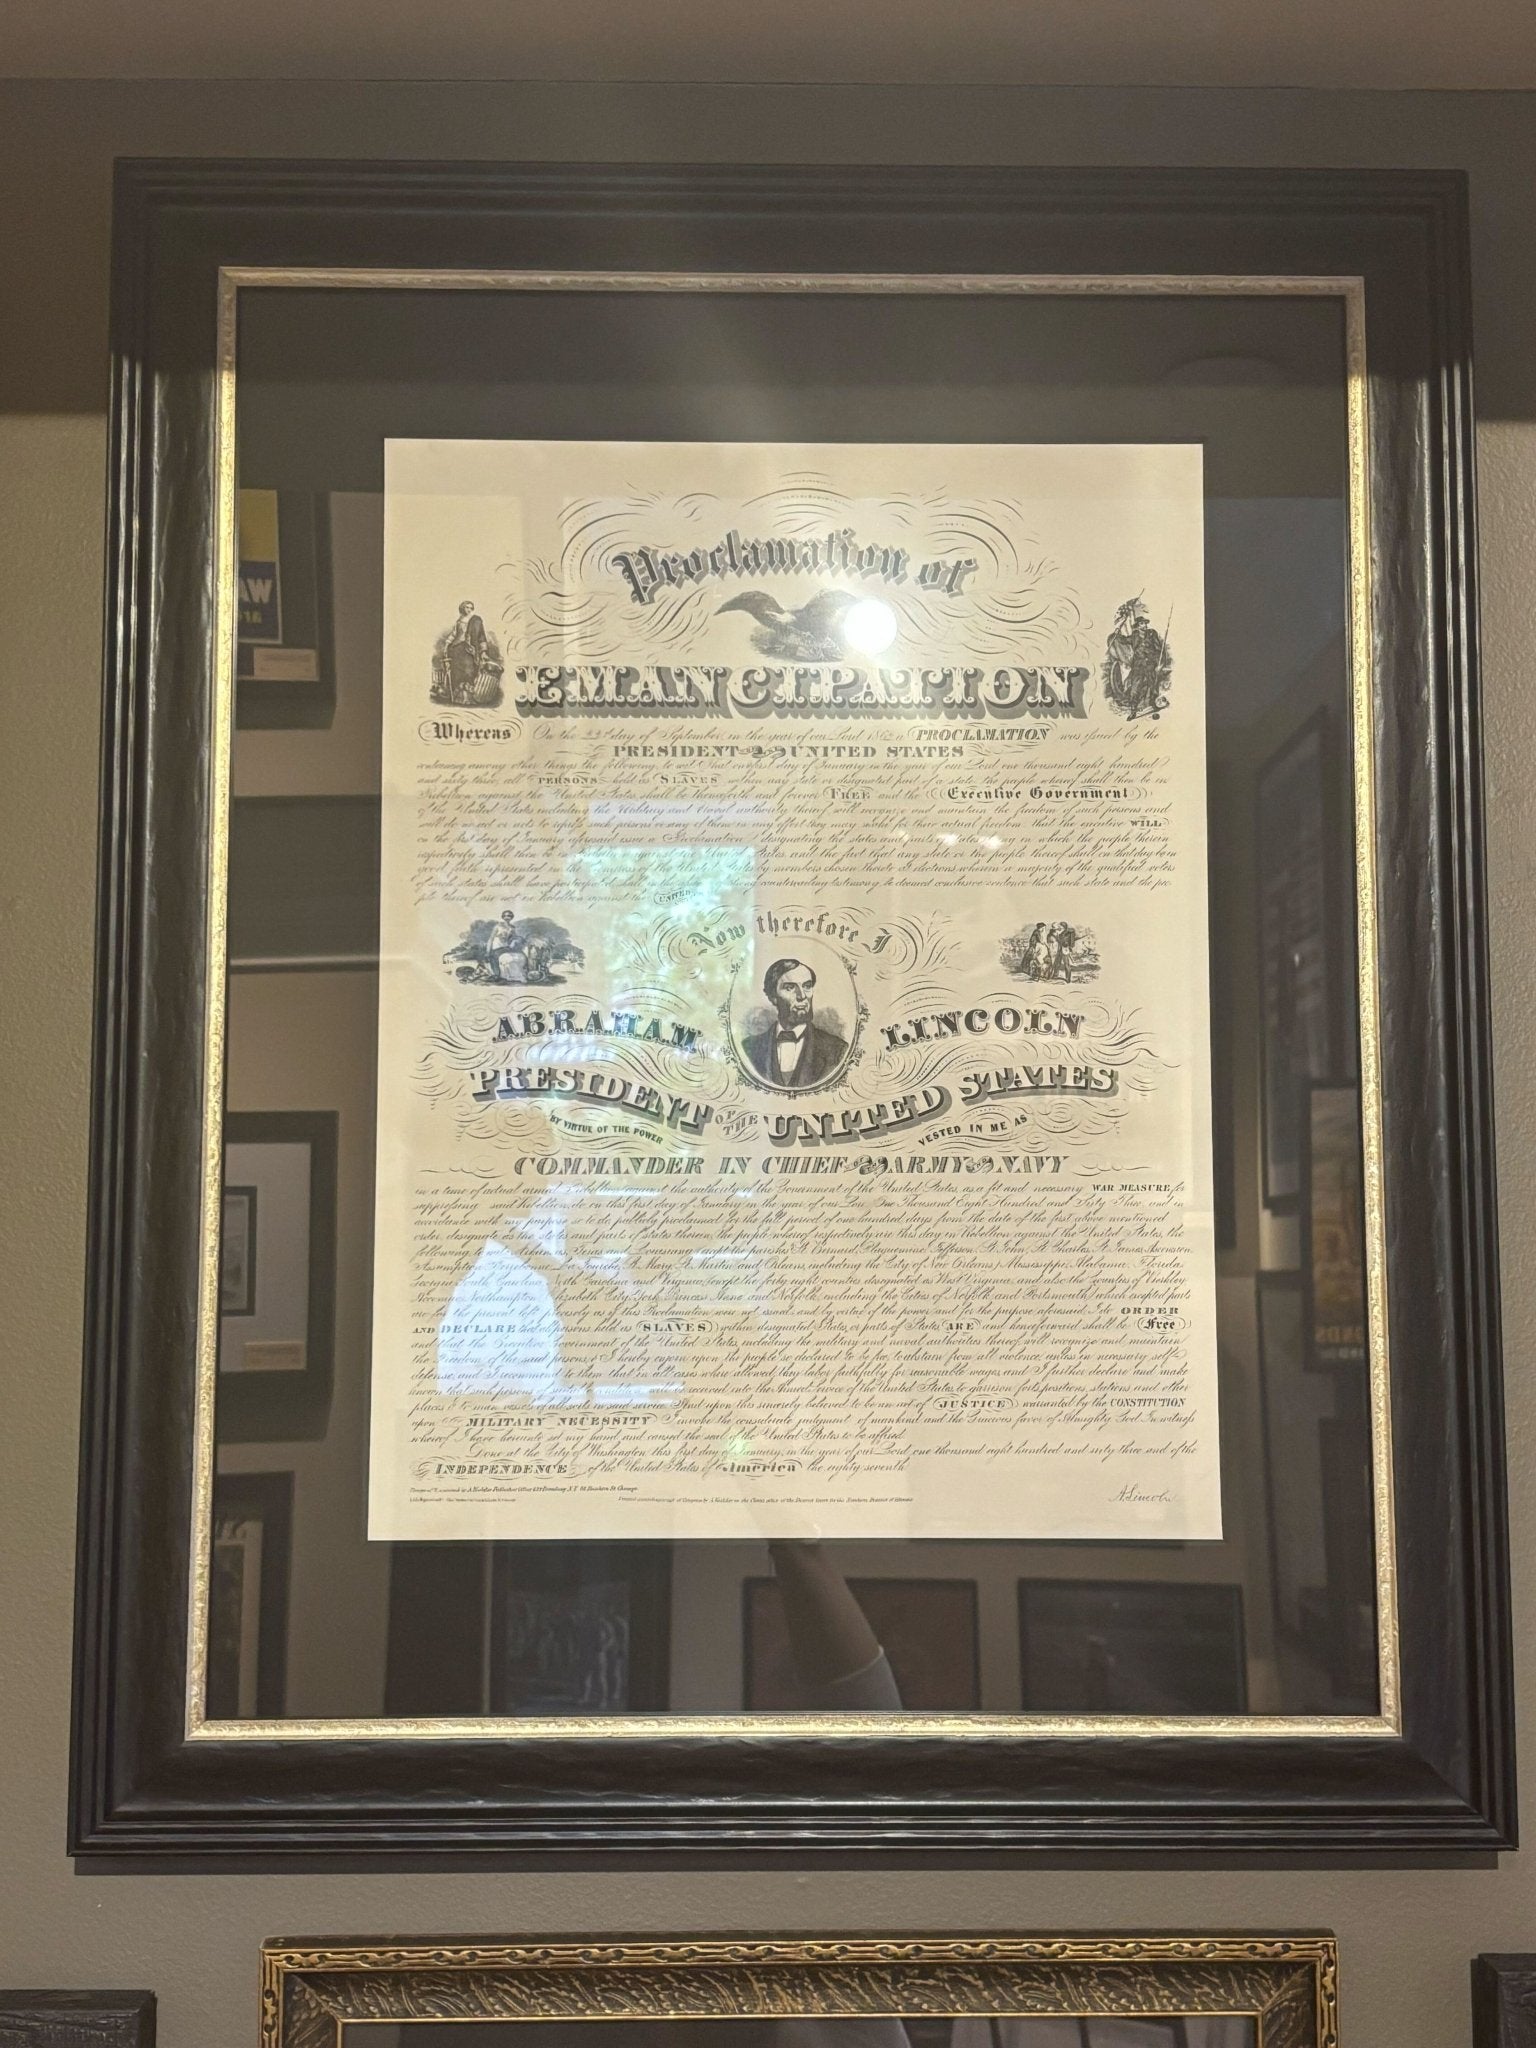 Proclamation of
EMANCIPATION
Whereas On the 22nd day of September, in the year of our Lord 1862 a PROCLAMATION was issued by the
PRESIDENT UNITED STATES
containing among other things the following to wit: That on first day of January in the year of our Lord one thousand eight hundred
and sixty three, all PERSONS held as SLAVES within any state or designated part of a state the people whereof shall then be in
Rebellion against the United States shall be thenceforth and forever FREE and the Executive Government
of the United States including the Military and Naval authority thereof will recognize and maintain the freedom of such persons and
will do no act or acts to repress such persons or any of them in any effort they may make for their actual freedom that the executive WILL
on the first day of January aforesaid issue a Proclamation designating the states and parts of states in which the people therein
respectively shall then be in against the United States and the fact that any state or the people thereof shall on that day be in
good faith represented in the Congress of the United States by members chosen thereto at elections wherein a majority of the qualified voters
of such states shall have participated shall in the strong countervailing testimony be deemed conclusive evidence that such state and the peo-
ple thereof are not in Rebellion against the UNITED
Now therefore I
ABRAHAM LINCOLN
PRESIDENT OF THE UNITED STATES
BY VIRTUE OF THE POWER VESTED IN ME AS
COMMANDER IN CHIEF ARMY NAVY
in a time of actual armed Rebellion against the authority of the Government of the United States, as a fit and necessary WAR MEASURE for
suppressing said Rebellion, do on this first day of January in the year of our Lord One Thousand Eight Hundred and Sixty Three and in
accordance with my purpose so to do, publicly proclaimed for the full period of one hundred days from the date of the first above mentioned
order, designate as the states and parts of states therein, the people whereof respectively are this day in Rebellion against the United States, the
following, to wit: Arkansas, Texas and Louisiana except the parishes St. Bernard, Plaquemine, Jefferson, St. John, St. Charles, St. James, Ascension,
Assumption, Terrebonne, La Fourche, St. Mary, St. Martin and Orleans, including the City of New Orleans, Mississippi, Alabama, Florida,
Georgia, South Carolina, North Carolina and Virginia, except the forty eight counties designated as West Virginia, and also the Counties of Berkley
Accomac, Northampton, Elizabeth City, York, Princess Anne and Norfolk, including the Cities of Norfolk and Portsmouth, which excepted parts
are for the present left precisely as if this Proclamation were not issued and by virtue of the power and for the purpose aforesaid I do ORDER
AND DECLARE that all persons held as SLAVES within designated States, or parts of States ARE and henceforward shall be Free
and that the Executive Government of the United States, including the military and naval authorities thereof, will recognize and maintain
the Freedom of the said persons, & I hereby enjoin upon the people so declared to be free, to abstain from all violence, unless in necessary self-
defense, and I recommend to them that in all cases where allowed, they labor faithfully for reasonable wages, and I further declare and make
known that such persons of suitable condition will be received into the Armed Service of the United States to garrison forts, positions, stations and other
places & to man vessels of all sorts in said service. And upon this sincerely believed to be an act of JUSTICE warranted by the CONSTITUTION
upon MILITARY NECESSITY I invoke the considerate judgment of mankind and the Gracious favor of Almighty God. In witness
whereof I have hereunto set my hand and caused the seal of the United States to be affixed
Done at the City of Washington this first day of January, in the year of our Lord one thousand eight hundred and sixty three and of the
INDEPENDENCE of the United States of America the eighty seventh
A. Lincoln